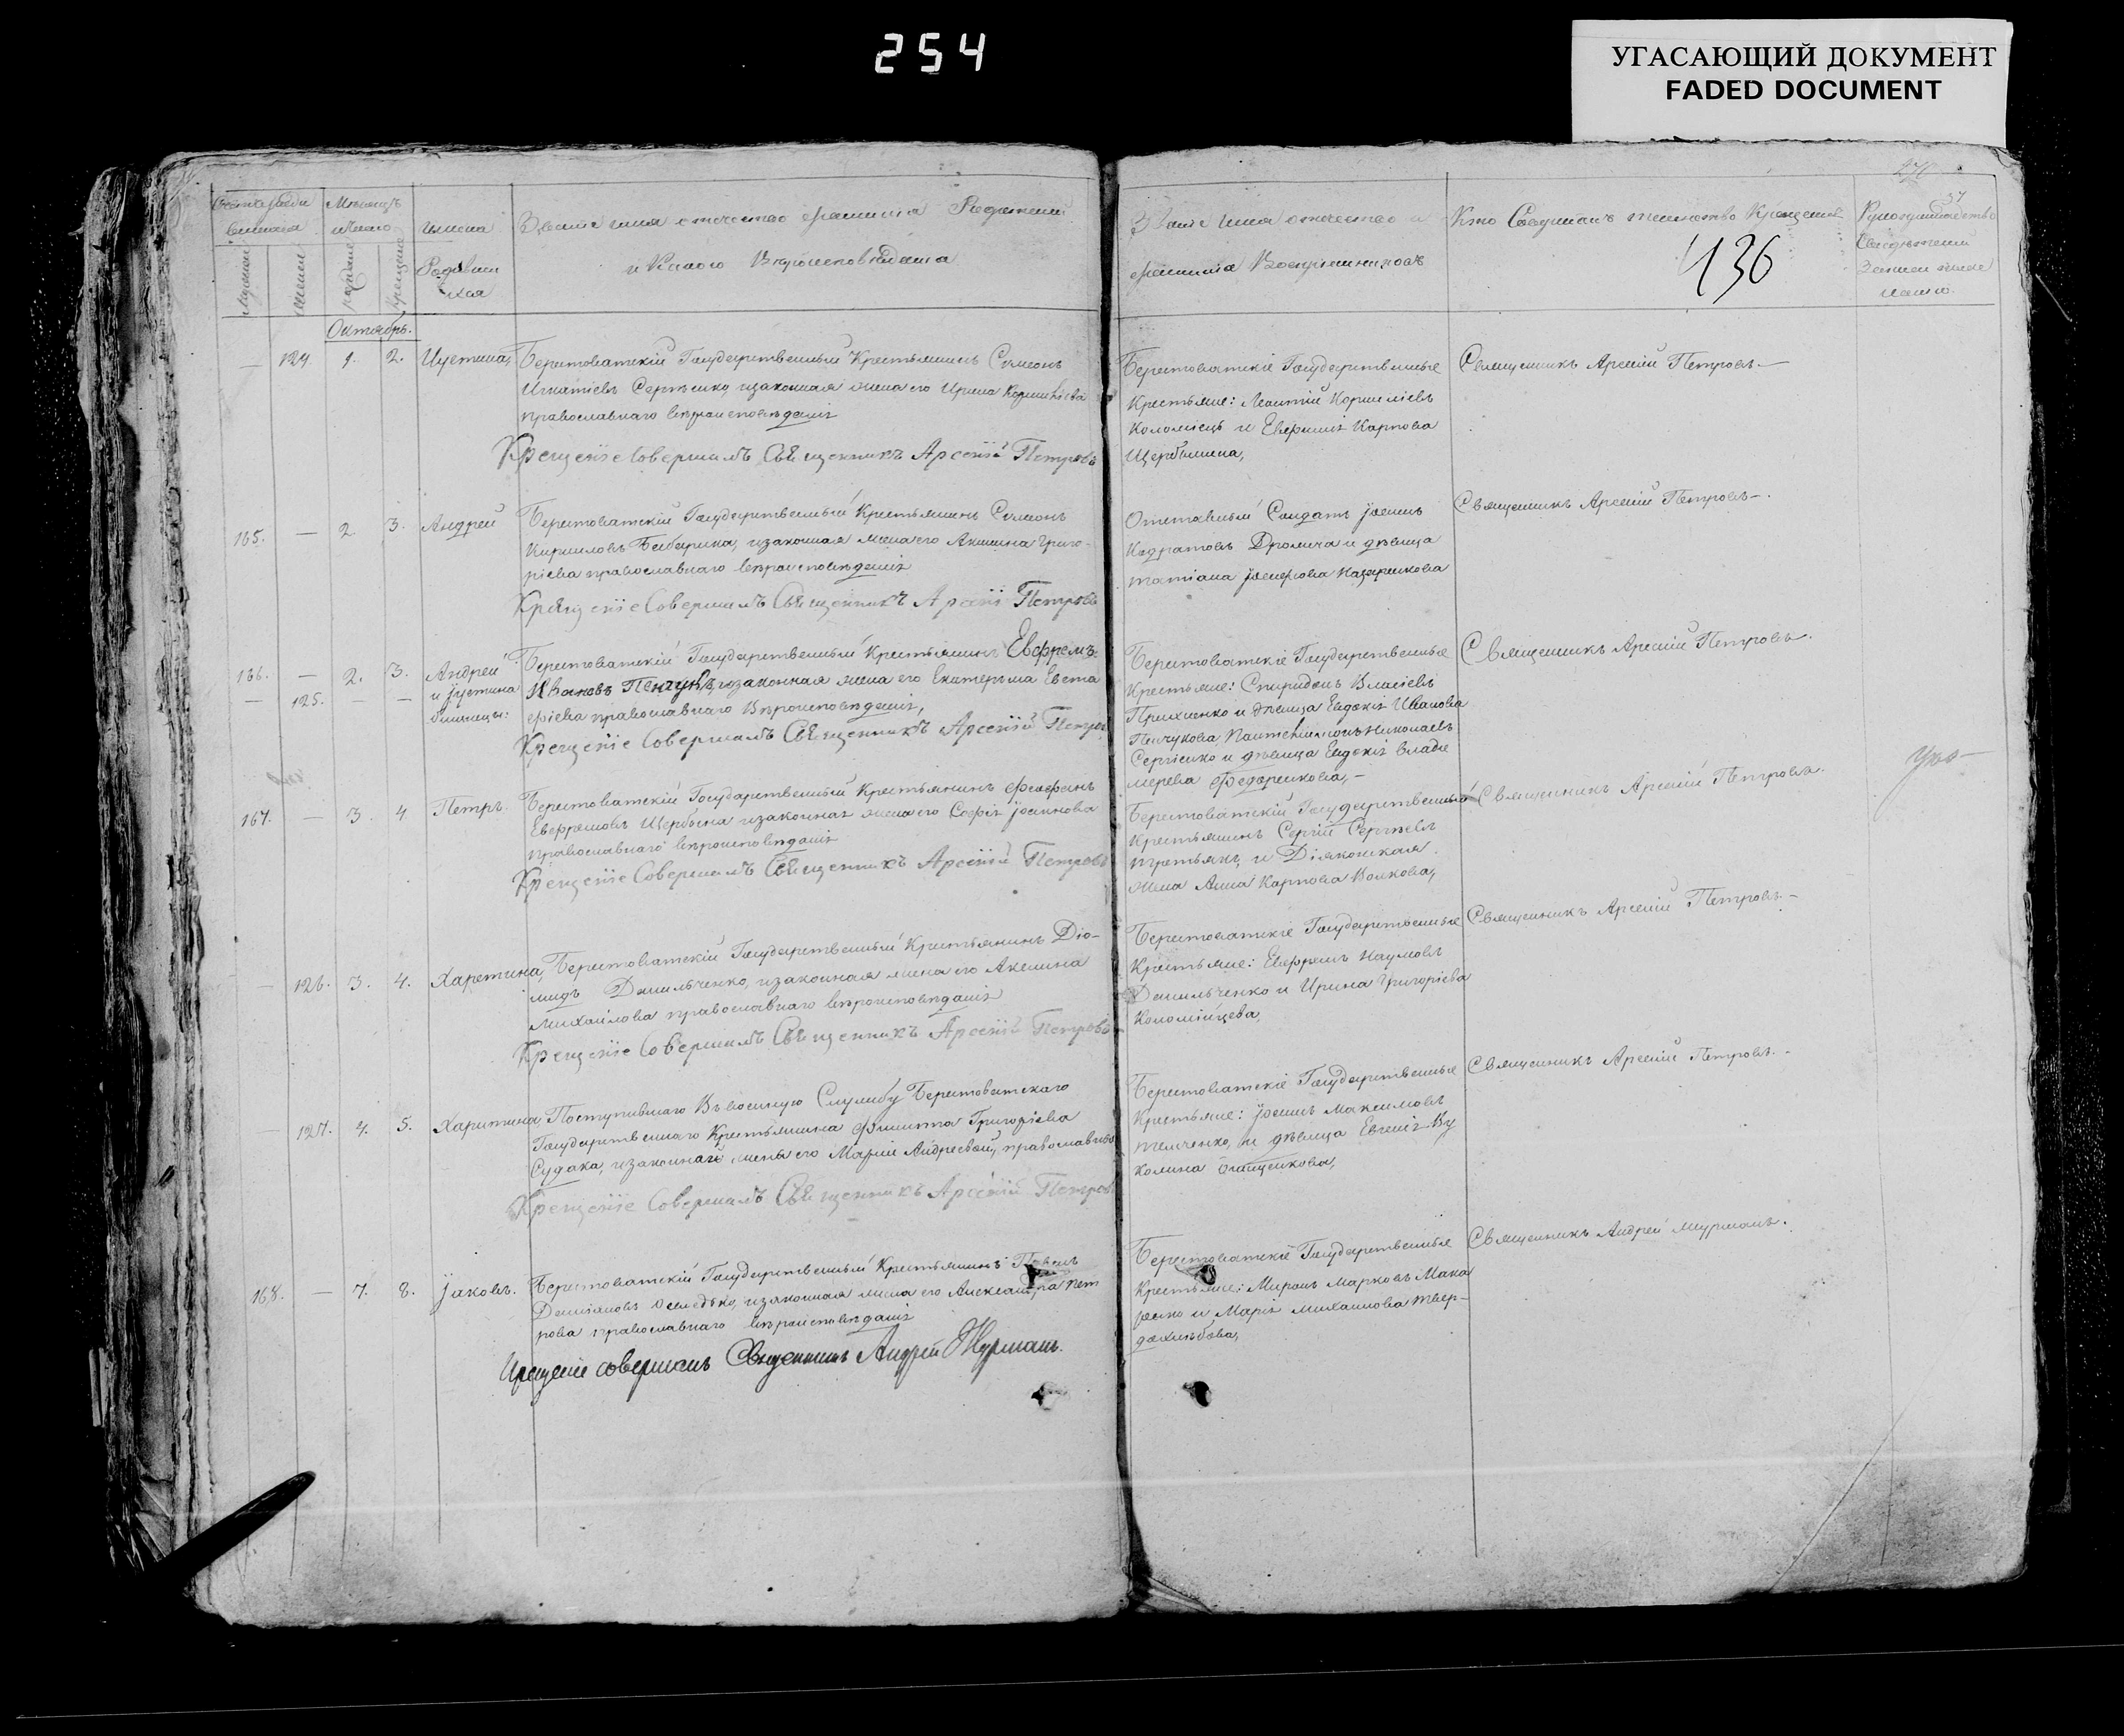 254
УГАСАЮЩИЙ ДОКУМЕНТ
FADED DOCUMENT
436
37
Мѣсяцъ
имена
Званіе имя отечество фамилія Родителей
и Какого Вѣроисповѣданія
Званіе имя отечество и
фамилія Воспріемниковъ
Кто Совершалъ таинство Крещенія
Октябрь.
— 124. 1. 2. Иустина,
Берестоватскій Государственный Крестьянинъ Симеонъ
Игнатіевъ Сергѣенко, изаконная жена его Ирина
православнаго вѣроисповѣданія
Крещеніе Совершалъ Священникъ Арсеній Петровъ
Берестоватскіе Государственные
Крестьяне: Леонтій Корниліевъ
Коломіецъ и Евфимія Карпова
Щербинина,
Священникъ Арсеній Петровъ—
165. — 2. 3. Андрей
Берестоватскій Государственный Крестьянинъ Симеонъ
Кирилловъ изаконная жена его Акилина Григо-
ріева православнаго вѣроисповѣданія
Крещеніе Совершалъ Священникъ Арсеній Петровъ
Отставный Солдатъ Іоаннъ
и дѣвица
татіана Іосифова Назаренкова
Священникъ Арсеній Петровъ—.
166. — 2. 3. Андрей
— 125. — — и Іустина
близнецы:
Берестоватскій Государственный Крестьянинъ Евфремъ
Ивановъ изаконная жена его Екатерина Евста
фіева православнаго Вѣроисповѣданія,
Крещеніе Совершалъ Священникъ Арсеній Петровъ
Берестоватскіе Государственные
Крестьяне: Спиридонъ Власіевъ
и дѣвица Евдокія Иванова
Пенчукова, Николаевъ
Сергіенко и дѣвица Евдокія Влади
мерова Федоренкова,—
Священникъ Арсеній Петровъ.
167. — 3. 4 Петръ.
Берестоватскій Государственный Крестьянинъ Феофанъ
Евфремовъ Щербина изаконная жена его Софія Іоаннова
православнаго вѣроисповѣданія
Крещеніе Совершалъ Священникъ Арсеній Петровъ
Берестоватскій Государственный
Крестьянинъ Сергій Сергѣевъ
третьякъ, и Діяконская
жена Анна Карпова Волкова,
Священникъ Арсеній Петровъ.
— 126. 3. 4. Харетина,
Берестоватскій Государственный Крестьянинъ Діо-
мидъ Данильченко, изаконная жена его Акелина
Михайлова православнаго вѣроисповѣданія
Крещеніе Совершалъ Священникъ Арсеній Петровъ
Берестоватскіе Государственные
Крестьяне: Евфремъ Наумовъ
Данильченко и Ирина Григоріева
Коломійцева,
Священникъ Арсеній Петровъ.—
— 127. 4. 5. Харитина,
Поступившаго Въ военную Службу Берестоватскаго
Государственнаго Крестьянина Филиппа Григоріева
Судака, изаконной жены его Маріи Андреевой, православнаго
Крещеніе Совершалъ Священникъ Арсеній Петровъ
Берестоватскіе Государственные
Крестьяне: Іоаннъ Максимовъ
темченко, и дѣвица Евгенія Ву
колина Онищенкова,
Священникъ Арсеній Петровъ.—
168. — 7. 8. Іаковъ.
Берестоватскій Государственный Крестьянинъ Павелъ
Даміановъ изаконная жена его Александра Пет
рова православнаго вѣроисповѣданія
Крещеніе совершалъ Священникъ Андрей Журманъ.
Берестоватскіе Государственныя
Крестьяне: Миронъ Марковъ Мака
ренко и Марія Михаилова твер-
дохлѣбова,
Священникъ Андрей Журманъ.